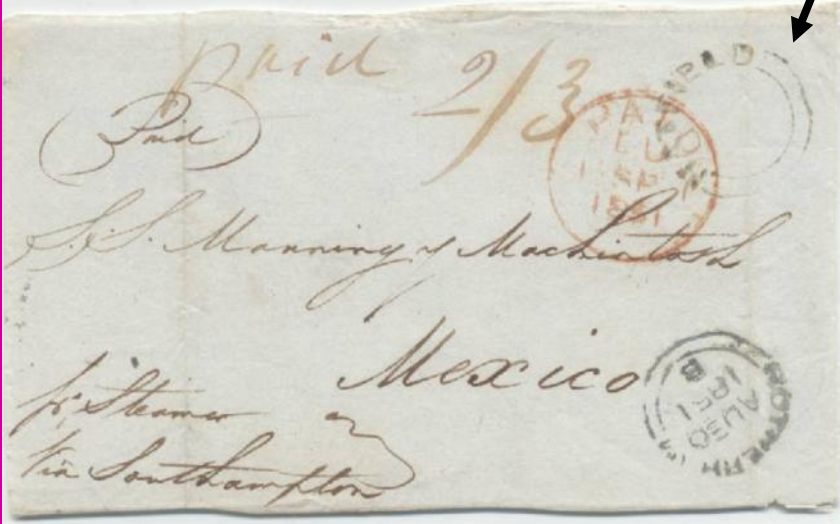 paid 2/3
Paid
PAID
LU
1 SP
1851
S. S. Manning & Mackintosh
Mexico
pr, Steamer
Via Southampton
ROTHERH
AU